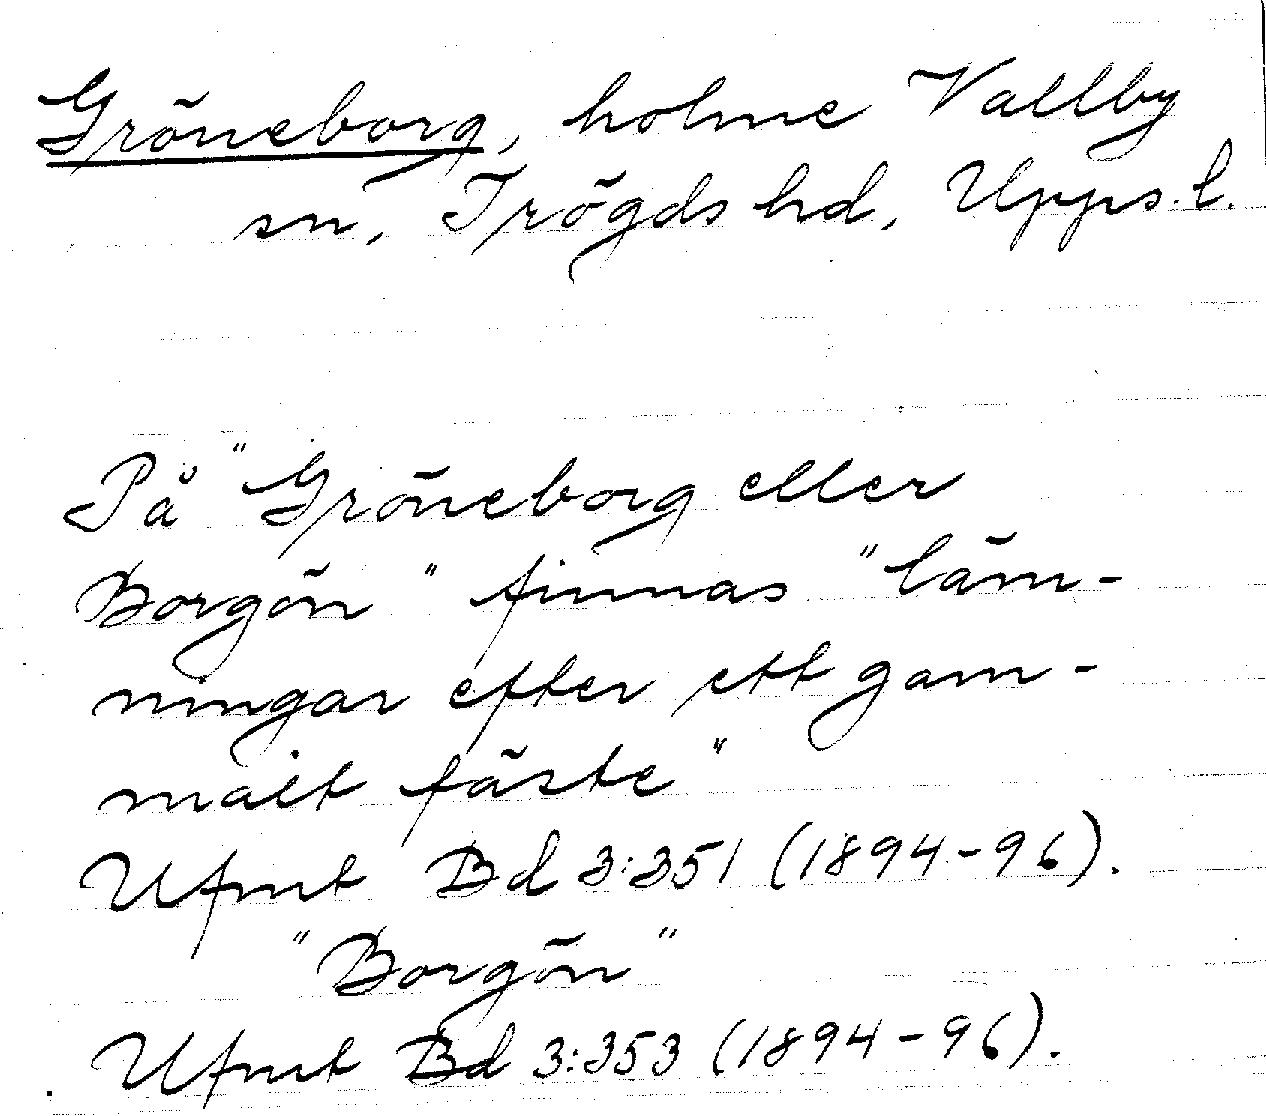 Gröneborg, holme Vallby
sn, Trögds hd, Upps. l.
På "Gröneborg eller
Borgön" finnas "läm-
ningar efter ett gam-
malt fäste"
Ufmt Bd 3:351 (1894-96).
"Borgön"
Ufmt Bd 3:353 (1894-96).